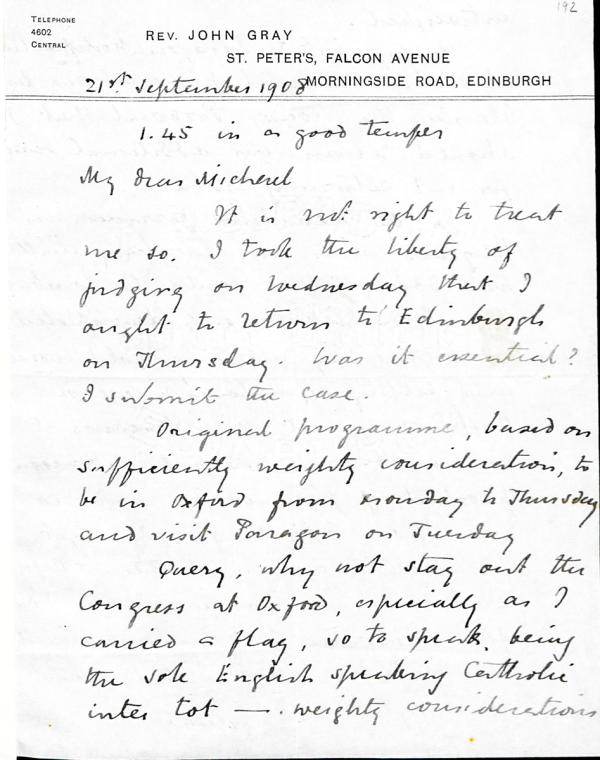 192
TELEPHONE
4602
CENTRAL
REV. JOHN GRAY
ST. PETER'S, FALCON AVENUE
MORNINGSIDE ROAD, EDINBURGH
21st September 1908
1.45 in a good temper
My dear Micherel
It is not right to treat
me so. I took the liberty of
judging on Wednesday that I
ought to return to Edinburgh
on Thursday. Was it essential?
I submit the case.
Original programme, based on
sufficiently weighty consideration, to
be in Oxford from Monday to Thursday
and visit Paragon on Tuesday
Query, why not stay out the
Congress at Oxford, especially as I
carried a flag, so to speak, being
the sole English speaking Catholic
inter tot —. weighty considerations